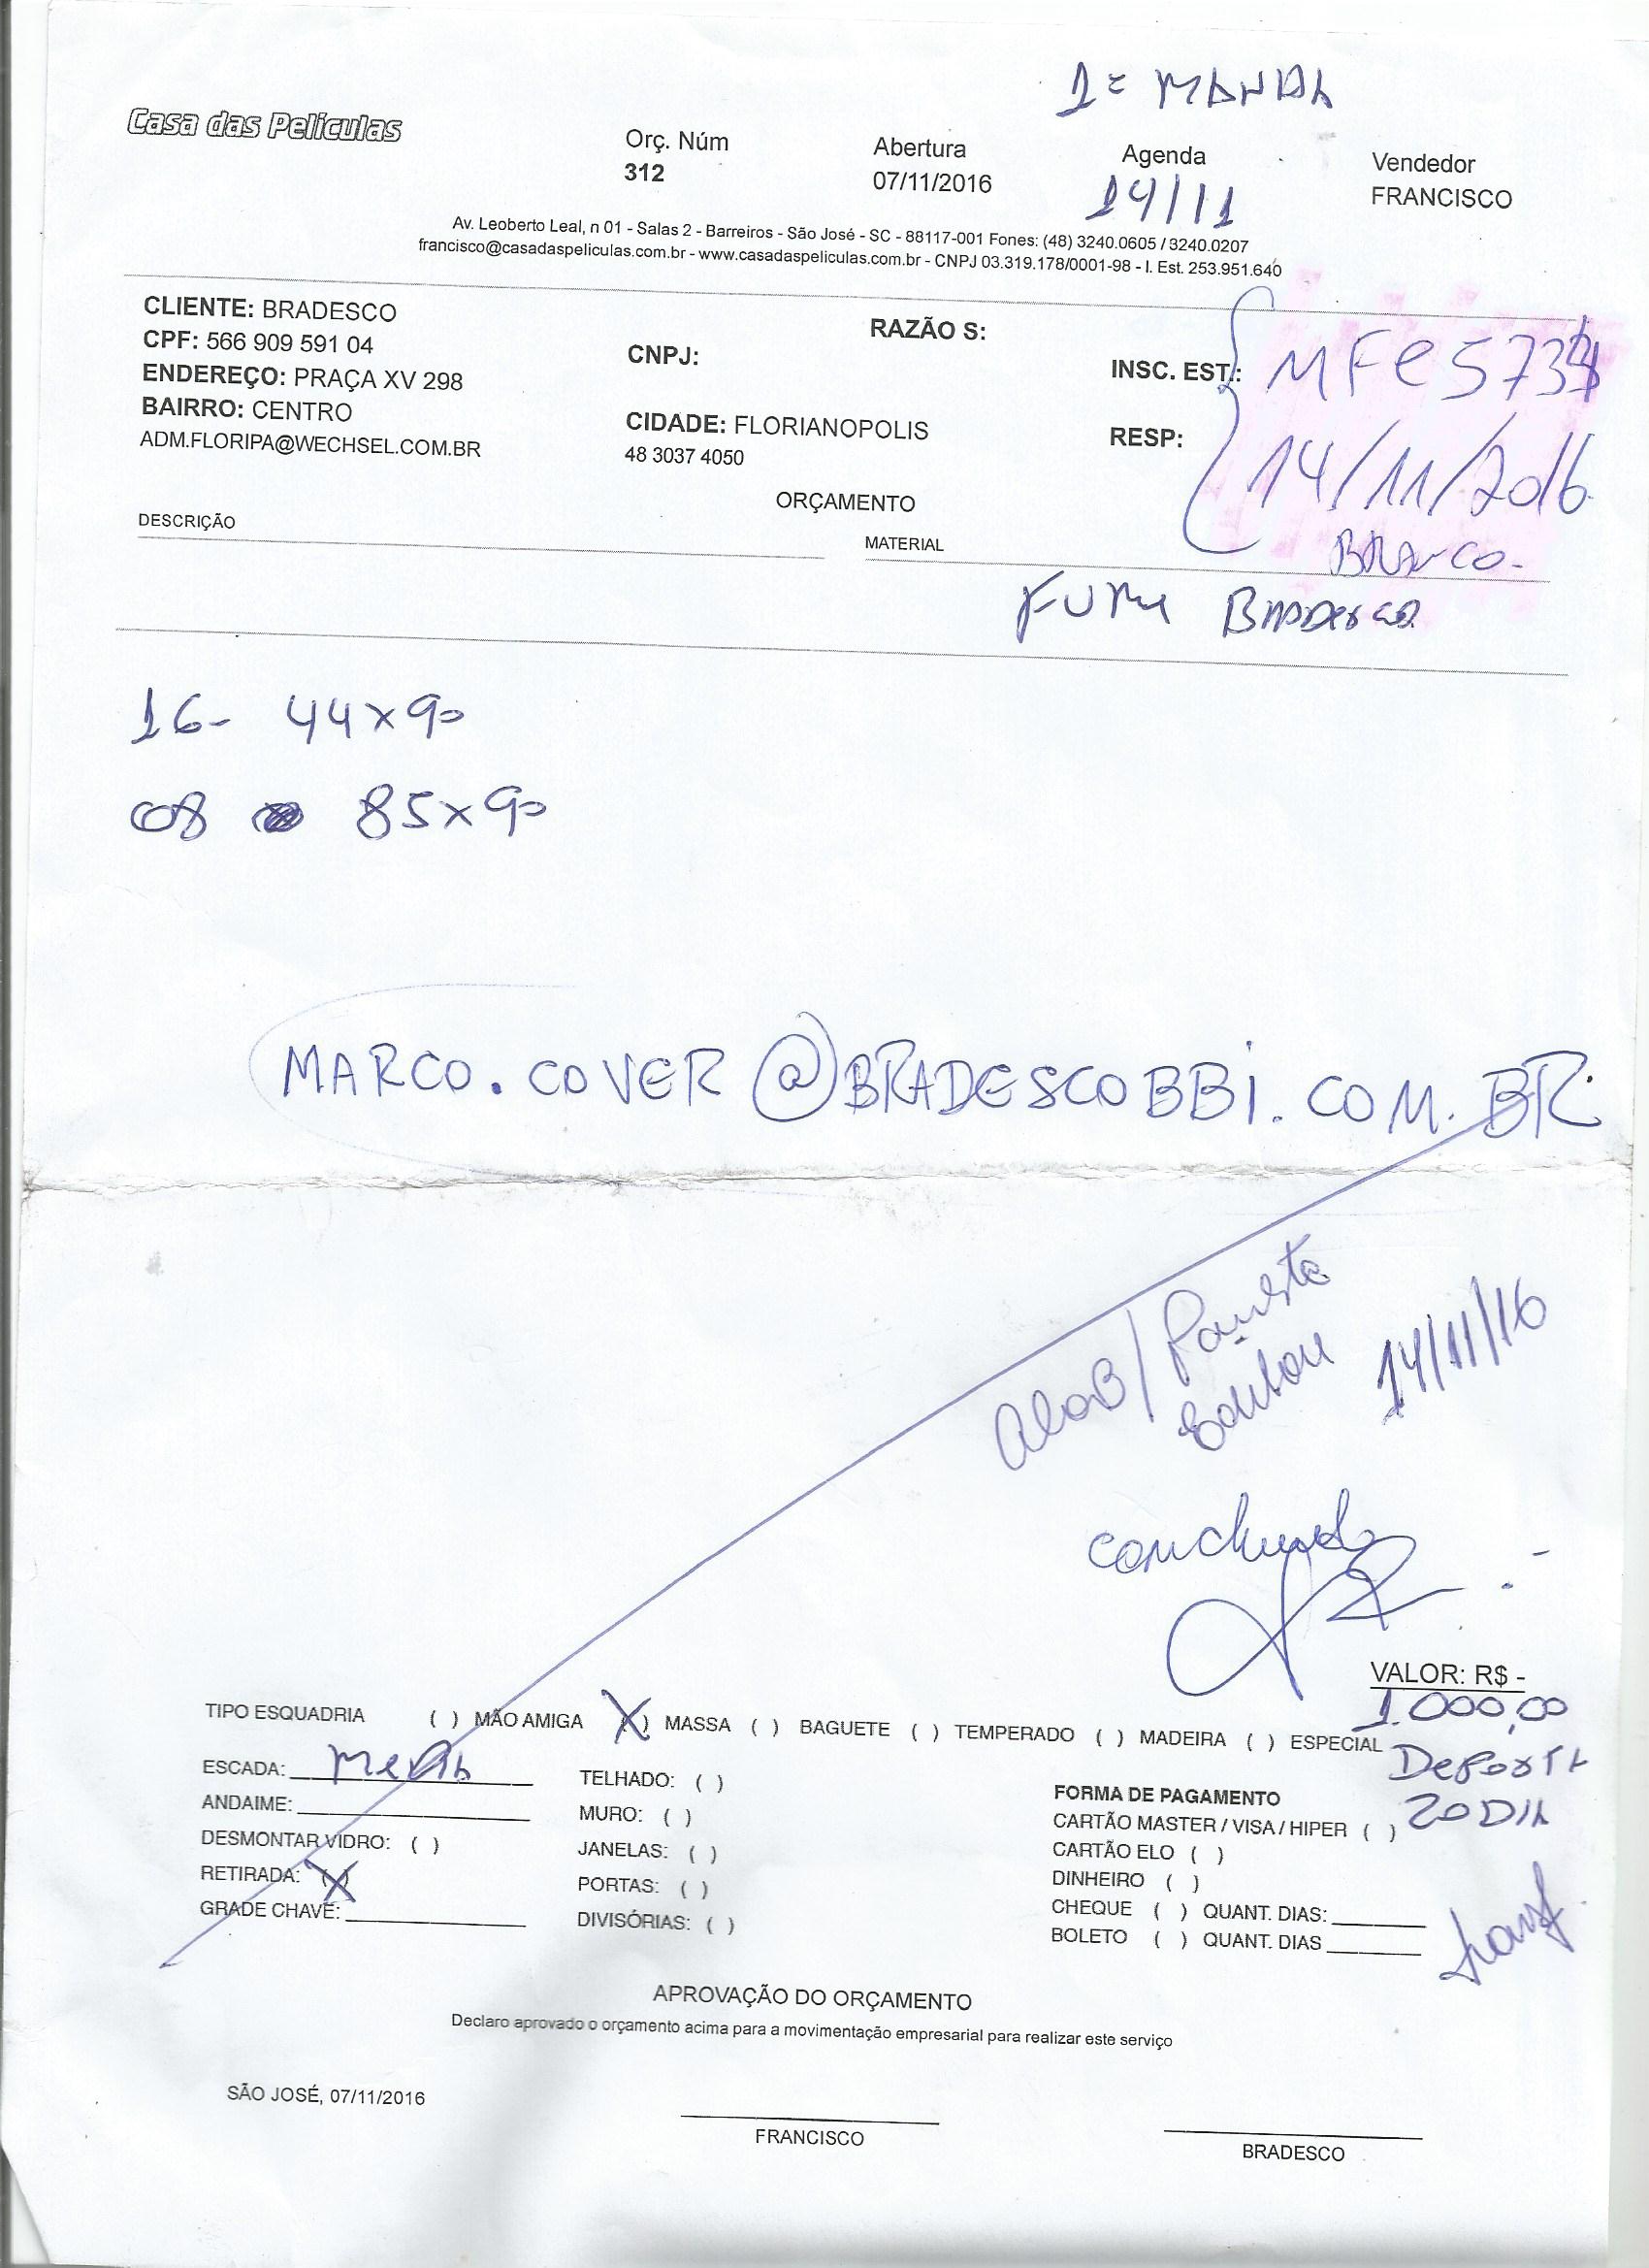 1ª MANHA
Casa das Películas
Orç. Núm
312
Abertura
07/11/2016
Agenda
14/11
Vendedor
FRANCISCO
Av. Leoberto Leal, n 01 - Salas 2 - Barreiros - São José - SC - 88117-001 Fones: (48) 3240.0605 / 3240.0207
francisco@casadaspeliculas.com.br - www.casadaspeliculas.com.br - CNPJ 03.319.178/0001-98 - I. Est. 253.951.640
CLIENTE: BRADESCO
CPF: 566 909 591 04
ENDEREÇO: PRAÇA XV 298
BAIRRO: CENTRO
ADM.FLORIPA@WECHSEL.COM.BR
CNPJ:
CIDADE: FLORIANOPOLIS
48 3037 4050
RAZÃO S:
INSC. EST.:
RESP:
14/11/2016
BRANCO.
ORÇAMENTO
DESCRIÇÃO
MATERIAL
FUME BRADESCO
16- 44x90
08 85x90
MARCO.COVER@BRADESCOBBI.COM.BR
14/11/16
VALOR: R$ -
1.000,00
TIPO ESQUADRIA ( ) MÃO AMIGA (X) MASSA ( ) BAGUETE ( ) TEMPERADO ( ) MADEIRA ( ) ESPECIAL
ESCADA:
ANDAIME:
DESMONTAR VIDRO: ( )
RETIRADA: (X)
GRADE CHAVE:
TELHADO: ( )
MURO: ( )
JANELAS: ( )
PORTAS: ( )
DIVISÓRIAS: ( )
20 DIA
FORMA DE PAGAMENTO
CARTÃO MASTER / VISA / HIPER ( )
CARTÃO ELO ( )
DINHEIRO ( )
CHEQUE ( ) QUANT. DIAS:
BOLETO ( ) QUANT. DIAS
APROVAÇÃO DO ORÇAMENTO
Declaro aprovado o orçamento acima para a movimentação empresarial para realizar este serviço
SÃO JOSÉ, 07/11/2016
FRANCISCO
BRADESCO